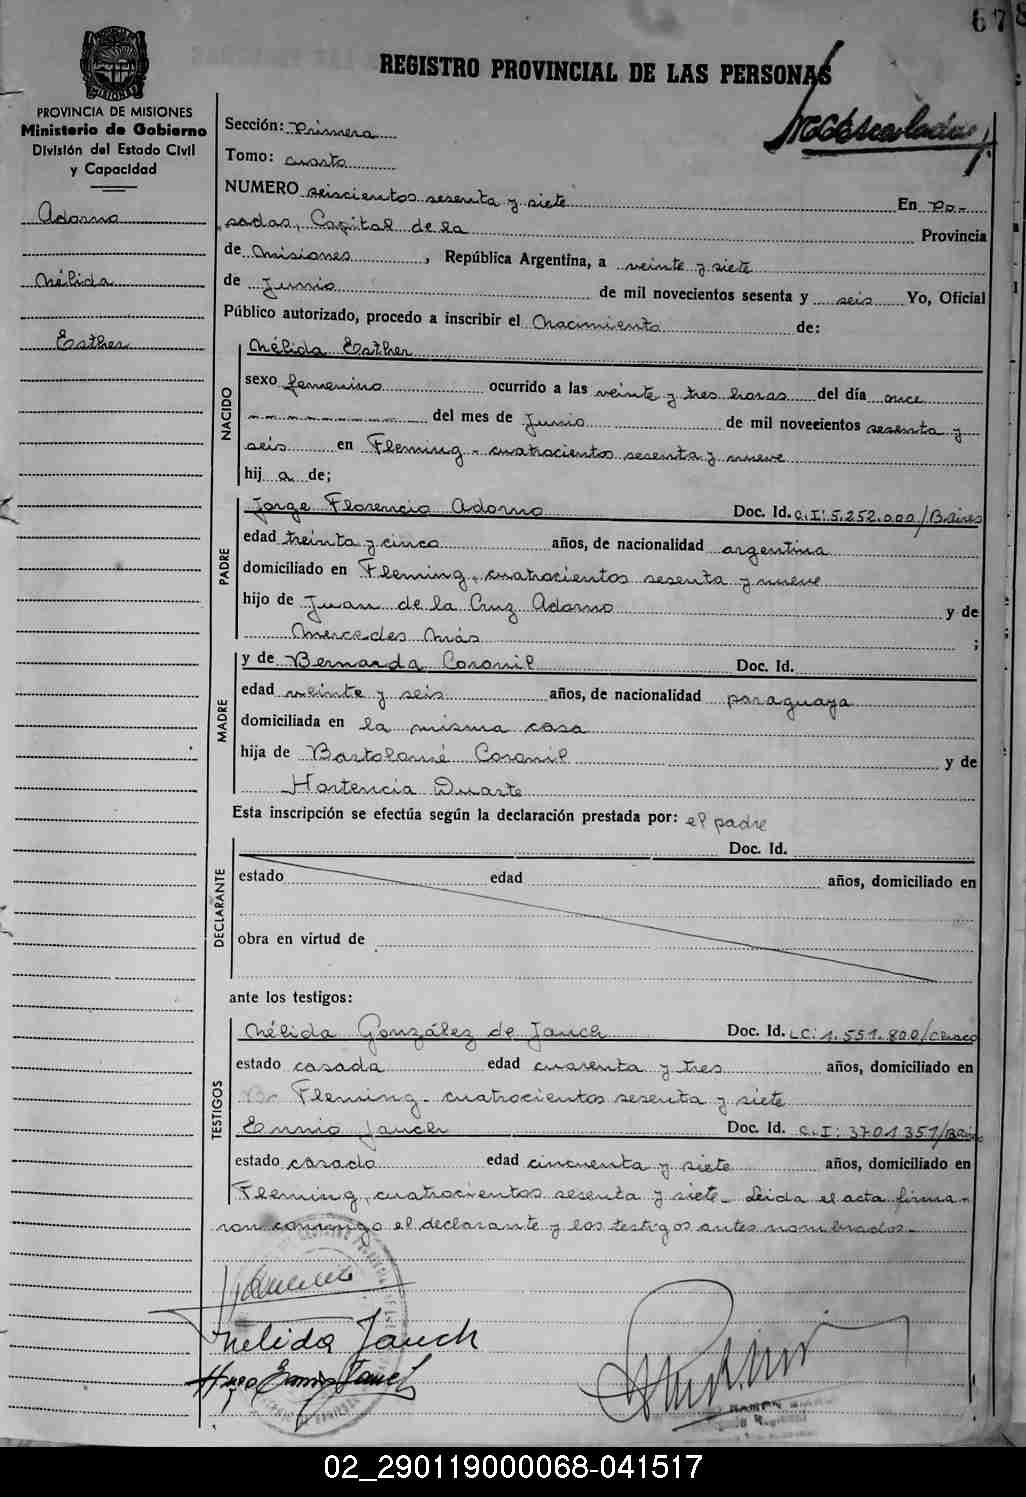 678
REGISTRO PROVINCIAL DE LAS PERSONAS
PROVINCIA DE MISIONES
Ministerio de Gobierno
División del Estado Civil
y Capacidad
Adorno
Nélida
Esther
Sección: Primera
Tomo: cuarto
NUMERO seiscientos sesenta y siete En Po-
sadas, Capital de la Provincia
de Misiones, República Argentina, a veinte y siete
de Junio de mil novecientos sesenta y seis Yo, Oficial
Público autorizado, procedo a inscribir el Nacimiento de:
NACIDO
Nélida Esther
sexo femenino ocurrido a las veinte y tres horas del día once
del mes de Junio de mil novecientos sesenta y
seis en Fleming - cuatrocientos sesenta y nueve
hij a de;
PADRE
Jorge Florencio Adorno Doc. Id. C.I: 5.252.000/B.aires
edad treinta y cinco años, de nacionalidad argentina
domiciliado en Fleming, cuatrocientos sesenta y nueve
hijo de Juan de la Cruz Adorno y de
Mercedes Más ;
MADRE
y de Bernarda Coronil Doc. Id.
edad veinte y seis años, de nacionalidad paraguaya
domiciliada en la misma casa
hija de Bartolomé Coronil y de
Hortencia Duarte
Esta inscripción se efectúa según la declaración prestada por: el padre
DECLARANTE
Doc. Id.
estado edad años, domiciliado en
obra en virtud de
ante los testigos:
TESTIGOS
Nélida González de Jauch Doc. Id. LC: 1.551.800/Chaco
estado casada edad cuarenta y tres años, domiciliado en
Fleming - cuatrocientos sesenta y siete
Ennio Jauch Doc. Id. C.I: 3701351/B.aires
estado casado edad cincuenta y siete años, domiciliado en
Fleming, cuatrocientos sesenta y siete - Leida el acta firma-
ron conmigo el declarante y los testigos antes nombrados.-
Nelida Jauch
Hugo Ennio Jauch
02_290119000068-041517